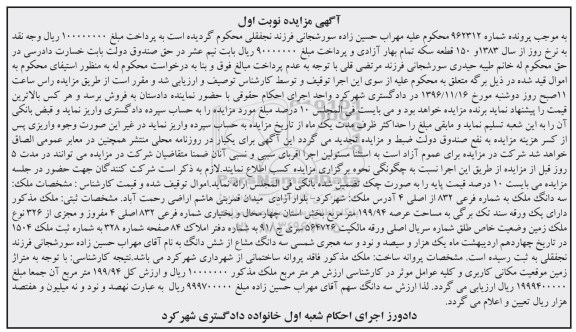 آگهی مزایده نوبت اول
به موجب پرونده شماره ۹۶۲۳۱۲ محکوم علیه مهراب حسین زاده سورشجانی فرزند نجفقلی محکوم گردیده است به پرداخت مبلغ ۱۰۰۰۰۰۰۰۰ ریال وجه نقد
به نرخ روز از سال ۱۳۸۳و ۱۵۰ قطعه سکه تمام بهار آزادی و پرداخت مبلغ ۹۰۰۰۰۰۰۰ ریال بابت نیم عشر در حق صندوق دولت بابت خسارت دادرسی در
حق محکوم له خانم طیبه حیدری سورشجانی فرزند مرتضی قلی با توجه به عدم پرداخت مبالغ فوق و بنا به درخواست محکوم له به منظور استیفای محکوم به
اموال قید شده در ذیل برگه متعلق به محکوم علیه از سوی این اجرا توقیف و توسط کارشناس توصیف و ارزیابی شد و مقرر است از طریق مزایده راس ساعت
۱۱صبح روز دوشنبه مورخ ۱۳۹۶/۱۱/۱۶ در دادگستری شهرکرد واحد اجرای احکام حقوقی با حضور نماینده دادستان به فروش برسد و هر کس بالاترین
قیمت را پیشنهاد نماید برنده مزایده خواهد بود و می بایست فی المجلس ۱۰ درصد مبلغ مورد مزایده را به حساب سپرده دادگستری واریز نماید و قبض بانکی
آن را به این شعبه تسلیم نماید و مابقی مبلغ را حداکثر ظرف مدت یک ماه از تاریخ مزایده به حساب سپرده واریز نماید در غیر این صورت وجوه واریزی پس
از کسر هزینه مزایده به نفع صندوق دولت ضبط و مزایده تجدید می گردد این آگهی برای یکبار در روزنامه محلی منتشر همچنین در معابر عمومی الصاق
خواهد شد شرکت در مزایده برای عموم آزاد است به استثنا مسئولین اجرا اقربای سببی و نسبی آنان ضمنا متقاضیان شرکت در مزایده می توانند در مدت ۵
روز قبل از مزایده از طریق این اجرا نسبت به چگونگی نحوه برگزاری مزایده کسب اطلاع نمایند.لازم به ذکر است شرکت کنندگان جهت حضور در جلسه
مزایده می بایست ۱۰ درصد قیمت پایه را به صورت چک تضمین شده بانکی فی المجلس ارائه نماید.اموال توقیف شده و قیمت کارشناس : مشخصات ملک:
سه دانگ ملک به شماره فرعی ۸۳۲ از اصلی ۴ آدرس ملک: شهرکرد- بلوارآزادی میدان قمربنی هاشم اراضی رحمت آباد. مشخصات ثبتی: ملک مذکور
دارای یک ورقه سند تک برگی به مساحت عرصه ۱۹۹/۹۴ متر مربع بخش استان چهارمحال و بختیاری شماره فرعی ۸۳۲ اصلی ۴ مفروز و مجزی از ۳۲۶ نوع
ملک زمین وضعیت خاص طلق شماره سریال اصلی ورقه مالکیت ۵۶۴۷۲۶ سری ب/۹۱ به شماره دفتر املاک ۸۴ صفحه شماره ۳۲۸ به شماره ثبت ملک ۱۵۰۴
در تاریخ چهاردهم اردیبهشت ماه یک هزار و سیصد و نود و سه هجری شمسی سه دانگ مشاع از شش دانگ به نام آقای مهراب حسین زاده سورشجانی فرزند
نجفقلی به ثبت رسیده است. مشخصات پروانه ساخت: ملک مذکور فاقد پروانه ساختمانی از شهرداری شهرکرد می باشد.نتیجه کارشناسی: با توجه به متراژ
زمین موقعیت مکانی کاربری و کلیه عوامل موثر در کارشناسی ارزش هر متر مربع ملک مذکور ۱۰۰۰۰۰۰۰ ریال و ارزش کل ۱۹۹/۹۴ متر مربع آن جمعا مبلغ
۱۹۹۹۴۰۰۰۰۰ ریال ارزیابی می گردد. لذا ارزش سه دانگ سهم آقای مهراب حسین زاده مبلغ ۹۹۹۷۰۰۰۰۰ ریال به عبارت نهصد و نود و نه میلیون و هفتصد
هزار ریال تعیین و اعلام می گردد.
دادورز اجرای احکام شعبه اول خانواده دادگستری شهرکرد